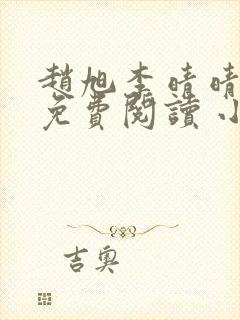 趙旭李晴晴
免費閱讀小
吉奧